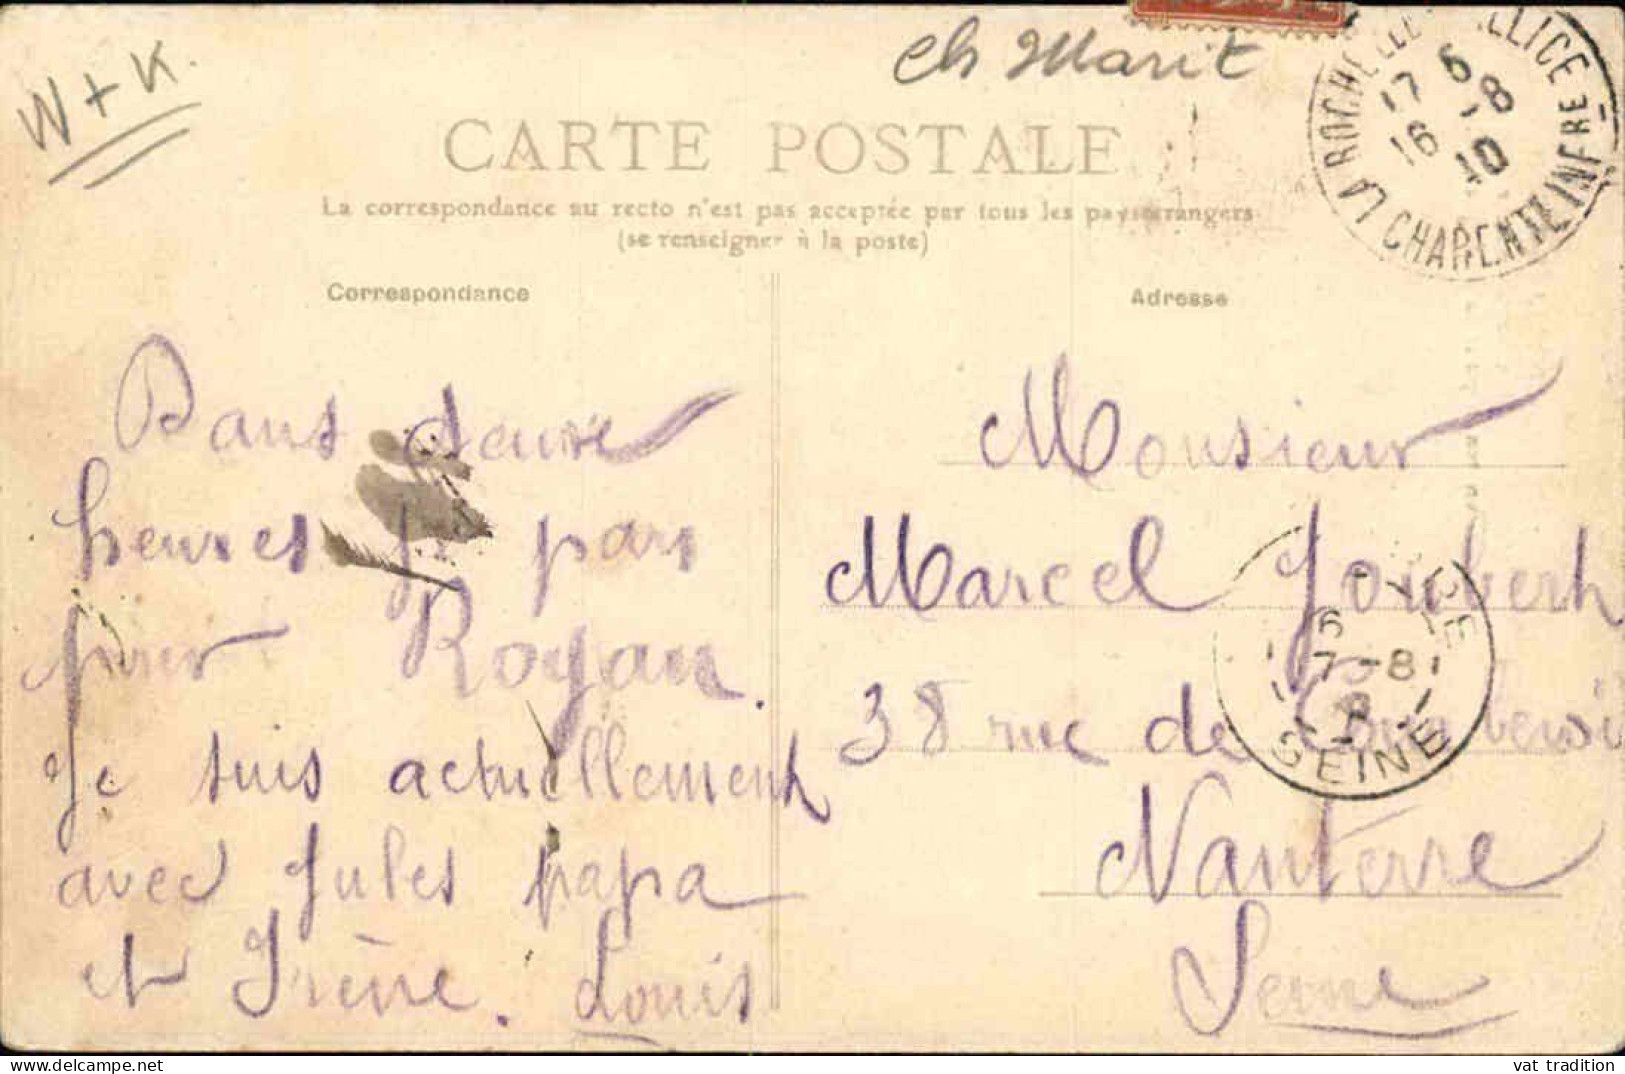 W + K.
Ch Marit
CARTE POSTALE
La correspondance au recto n'est pas acceptée par tous les pays étrangers
(se renseigner à la poste)
Correspondance
Dans deux
heures je pars
pour Royan.
Je suis actuellement
avec Jules papa
et Irène. Louis
Adresse
Monsieur
Marcel Joubert
38 rue de
Nanterre
Seine
LA ROCHELLE PALLICE
CHARENTE INFRE
17 6
16 -8
10
6
7-8
SEINE
vat tradition